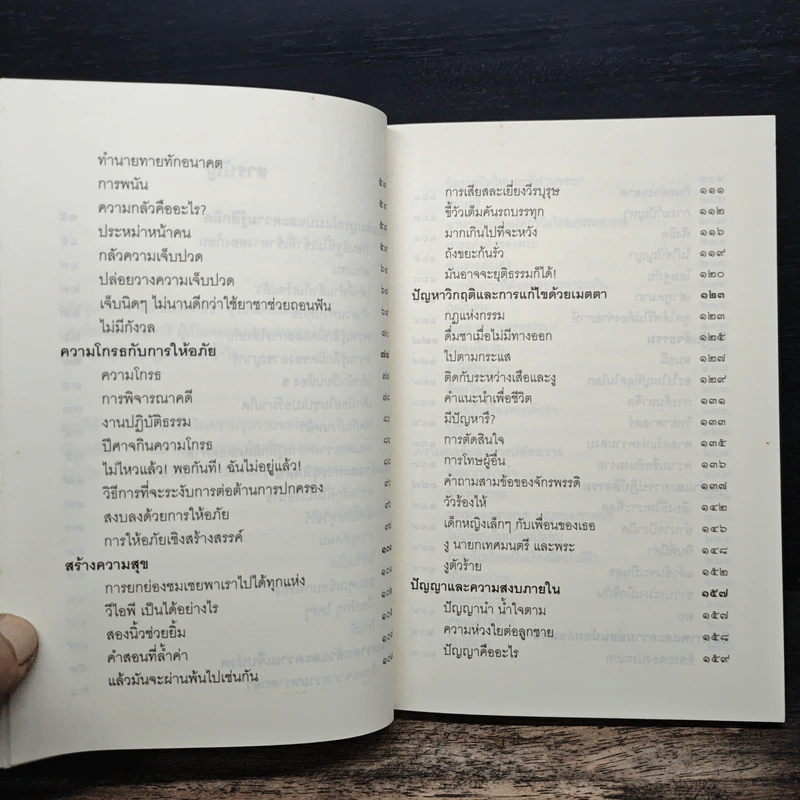 ทำนายทายทักอนาคต
การพนัน
ความกลัวคืออะไร?
ประหม่าหน้าคน
กลัวความเจ็บปวด
ปล่อยวางความเจ็บปวด
เจ็บนิดๆ ไม่นานดีกว่าใช้ยาชาช่วยถอนฟัน
ไม่มีกังวล
ความโกรธกับการให้อภัย
ความโกรธ
การพิจารณาคดี
งานปฏิบัติธรรม
ปีศาจกินความโกรธ
ไม่ไหวแล้ว! พอกันที! ฉันไม่อยู่แล้ว!
วิธีการที่จะระงับการต่อต้านการปกครอง
สงบลงด้วยการให้อภัย
การให้อภัยเชิงสร้างสรรค์
สร้างความสุข
การยกย่องชมเชยพาเราไปได้ทุกแห่ง
วีไอพี เป็นได้อย่างไร
สองนิ้วช่วยยิ้ม
คำสอนที่ล้ำค่า
แล้วมันจะผ่านพ้นไปเช่นกัน
การเสียสละเยี่ยงวีรบุรุษ ๑๑๑
ขี้วัวเต็มคันรถบรรทุก ๑๑๒
มากเกินไปที่จะหวัง ๑๑๖
ถังขยะก้นรั่ว ๑๑๙
มันอาจจะยุติธรรมก็ได้! ๑๒๐
ปัญหาวิกฤติและการแก้ไขด้วยเมตตา ๑๒๓
กฎแห่งกรรม ๑๒๓
ดื่มชาเมื่อไม่มีทางออก ๑๒๕
ไปตามกระแส ๑๒๗
ติดกับระหว่างเสือและงู ๑๒๙
คำแนะนำเพื่อชีวิต ๑๓๑
มีปัญหารึ? ๑๓๓
การตัดสินใจ ๑๓๕
การโทษผู้อื่น ๑๓๖
คำถามสามข้อของจักรพรรดิ ๑๓๗
วัวร้องไห้ ๑๔๒
เด็กหญิงเล็กๆ กับเพื่อนของเธอ ๑๔๖
งู นายกเทศมนตรี และพระ ๑๔๘
งูตัวร้าย ๑๕๒
ปัญญาและความสงบภายใน ๑๕๗
ปัญญานำ น้ำใจตาม ๑๕๗
ความห่วงใยต่อลูกชาย ๑๕๘
ปัญญาคืออะไร ๑๕๙